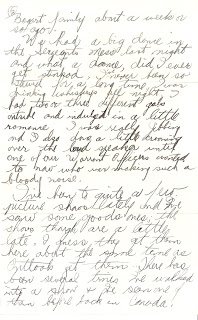 Begert family about a week or
so ago.
We had a big dance in
the Sergeants mess last night
and what a dance, did I ever
get stinked. I never been so
for a long time. I was
drinking whiskeys all night. I
had two or three different gals
outside and indulged in a little
romance. I was really
and I also done a little drumming
over the loud speaker until
one of our Warrant Officers wanted
to know who was making such a
bloody noise.
I've been to quite a few
picture shows lately and I've
saw some good ones, the
shows though are a little
late. I guess they get them
here about the same time as
get them. There has
been several times I've walked
into a show & I've seen
back in Canada!